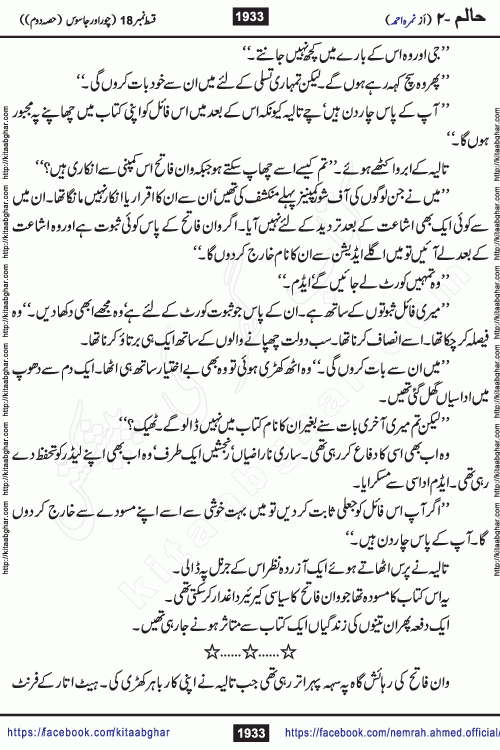 حالم -۲ (از نمرہ احمد)
1933
قسط نمبر 18 (چور اور جاسوس (حصہ دوم))
’’جی اور وہ اس کے بارے میں کچھ نہیں جانتے۔‘‘
’’پھر وہ سچ کہہ رہے ہوں گے۔ لیکن تمہاری تسلی کے لئے میں ان سے خود بات کروں گی۔‘‘
’’آپ کے پاس چار دن ہیں‘ چے تالیہ کیونکہ اس کے بعد میں اس فائل کو اپنی کتاب میں چھاپنے پہ مجبور
ہوں گا۔‘‘
تالیہ کے ابرو اکٹھے ہوئے۔ ’’تم کیسے اسے چھاپ سکتے ہو جبکہ وان فاتح اس کمپنی سے انکاری ہیں؟‘‘
’’میں نے جن لوگوں کی آف شور کمپنیز پہلے منکشف کی تھیں‘ ان سے ان کا اقرار یا انکار نہیں مانگا تھا۔ ان میں
سے کوئی ایک بھی اشاعت کے بعد تردید کے لئے نہیں آیا۔ اگر وان فاتح کے پاس کوئی ثبوت ہے اور وہ اشاعت
کے بعد لے آئیں تو میں اگلے ایڈیشن سے ان کا نام خارج کر دوں گا۔‘‘
’’وہ تمہیں کورٹ لے جائیں گے‘ ایڈم۔‘‘
’’میری فائل ثبوتوں کے ساتھ ہے۔ ان کے پاس جو ثبوت کورٹ کے لئے ہے‘ وہ مجھے ابھی دکھا دیں۔‘‘ وہ
فیصلہ کر چکا تھا۔ اسے انصاف کرنا تھا۔ سب دولت چھپانے والوں کے ساتھ ایک ہی برتاؤ کرنا تھا۔
’’میں ان سے بات کروں گی۔‘‘ وہ اٹھ کھڑی ہوئی تو وہ بھی بے اختیار ساتھ ہی اٹھا۔ ایک دم سے دھوپ
میں اداسیاں گھل گئی تھیں۔
’’لیکن تم میری آخری بات سنے بغیر ان کا نام کتاب میں نہیں ڈالو گے۔ ٹھیک؟‘‘
وہ اب بھی اسی کا دفاع کر رہی تھی۔ ساری ناراضیاں‘ رنجشیں ایک طرف‘ وہ اب بھی اپنے لیڈر کو تحفظ دے
رہی تھی۔ ایڈم اداسی سے مسکرایا۔
’’اگر آپ اس فائل کو جعلی ثابت کر دیں تو میں بہت خوشی سے اسے اپنے مسودے سے خارج کر دوں
گا۔ آپ کے پاس چار دن ہیں۔‘‘
تالیہ نے پرس اٹھاتے ہوئے ایک آزردہ نظر اس کے جرنل پہ ڈالی۔
یہ اس کتاب کا مسودہ تھا جو وان فاتح کا سیاسی کیریئر داغدار کر سکتی تھی۔
ایک دفعہ پھر ان تینوں کی زندگیاں ایک کتاب سے متاثر ہونے جا رہی تھیں۔
☆......☆......☆
وان فاتح کی رہائش گاہ پہ سہ پہر اتر رہی تھی جب تالیہ نے اپنی کار باہر کھڑی کی۔ ہیٹ اتار کے فرنٹ
https://facebook.com/kitaabghar
1933
https://facebook.com/nemrah.ahmed.official/
http://kitaabghar.com
kitaabghar.com